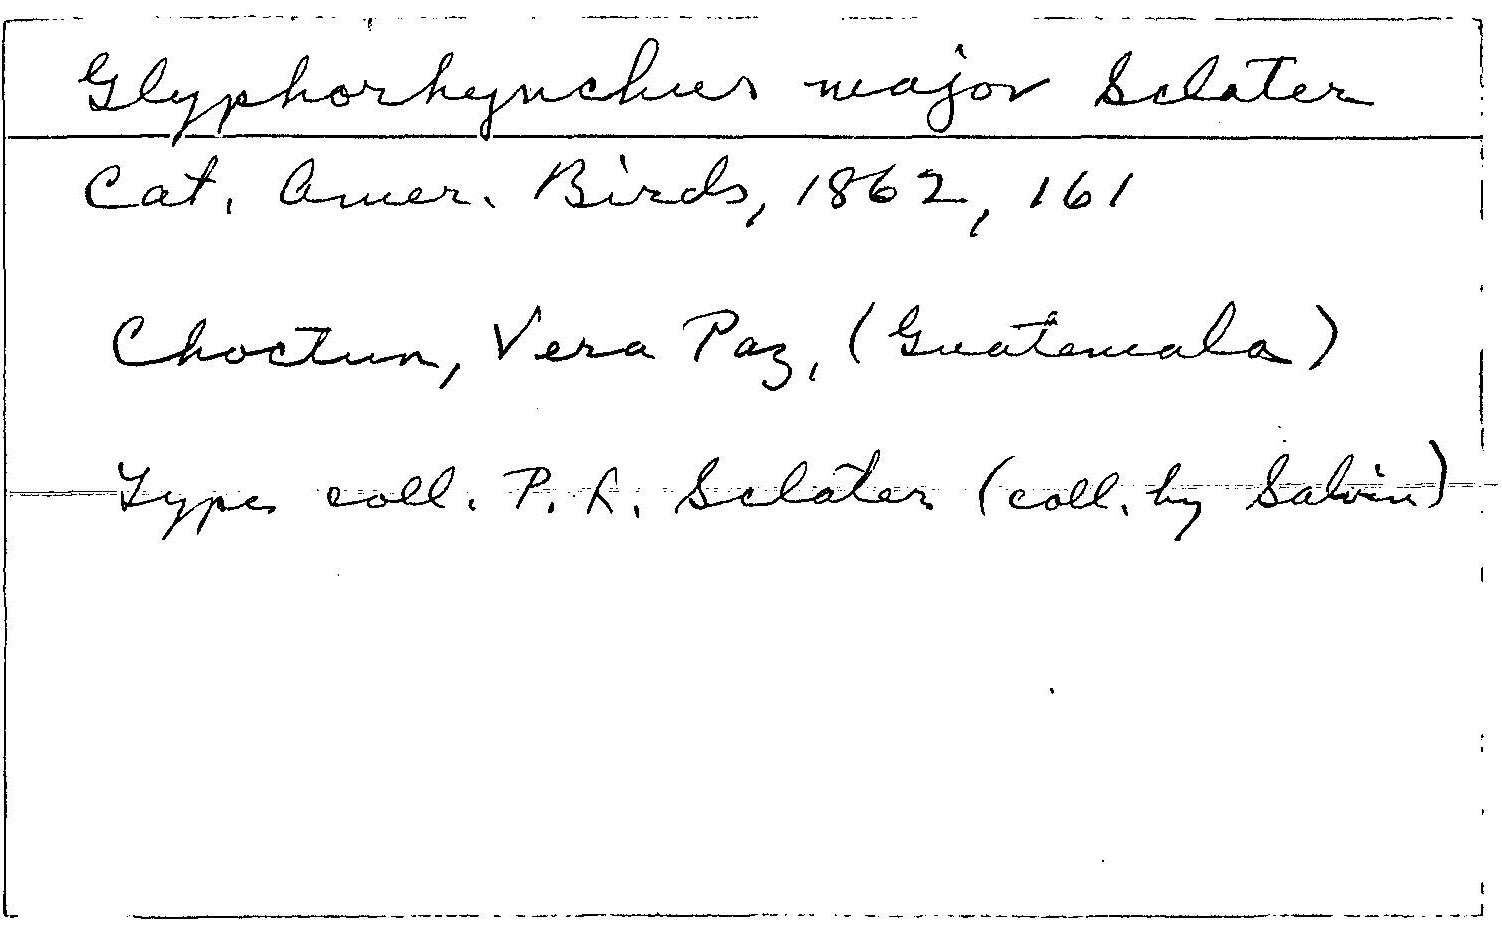 Glyphorhynchus major Sclater
Cat. Amer. Birds, 1862, 161
Choctun, Vera Paz, (Guatemala)
Type coll. P. L. Sclater (coll. by Salvin)